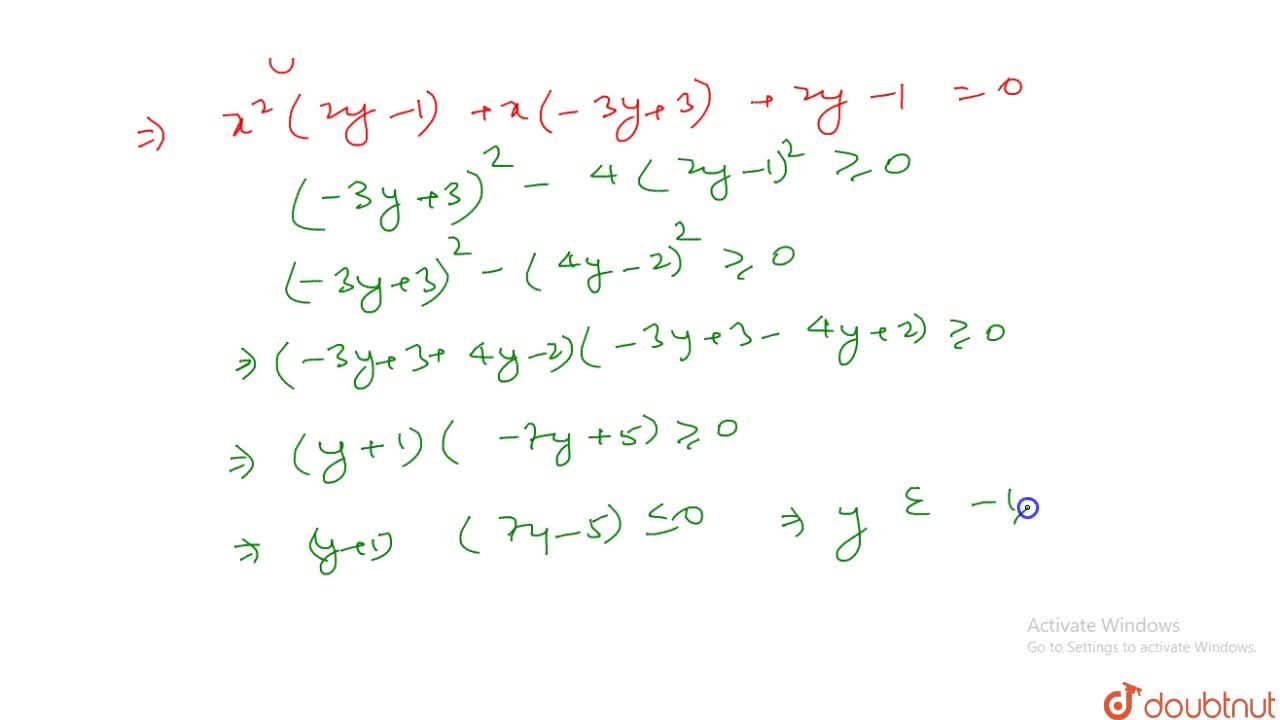 ⇒ x²(2y-1) + x(-3y+3) + 2y-1 = 0
(-3y+3)² - 4(2y-1)² ≥ 0
(-3y+3)² - (4y-2)² ≥ 0
⇒ (-3y+3+4y-2)(-3y+3-4y+2) ≥ 0
⇒ (y+1)(-7y+5) ≥ 0
⇒ (y+1) (7y-5) ≤ 0 ⇒ y ε -1,
Activate Windows
Go to Settings to activate Windows.
doubtnut